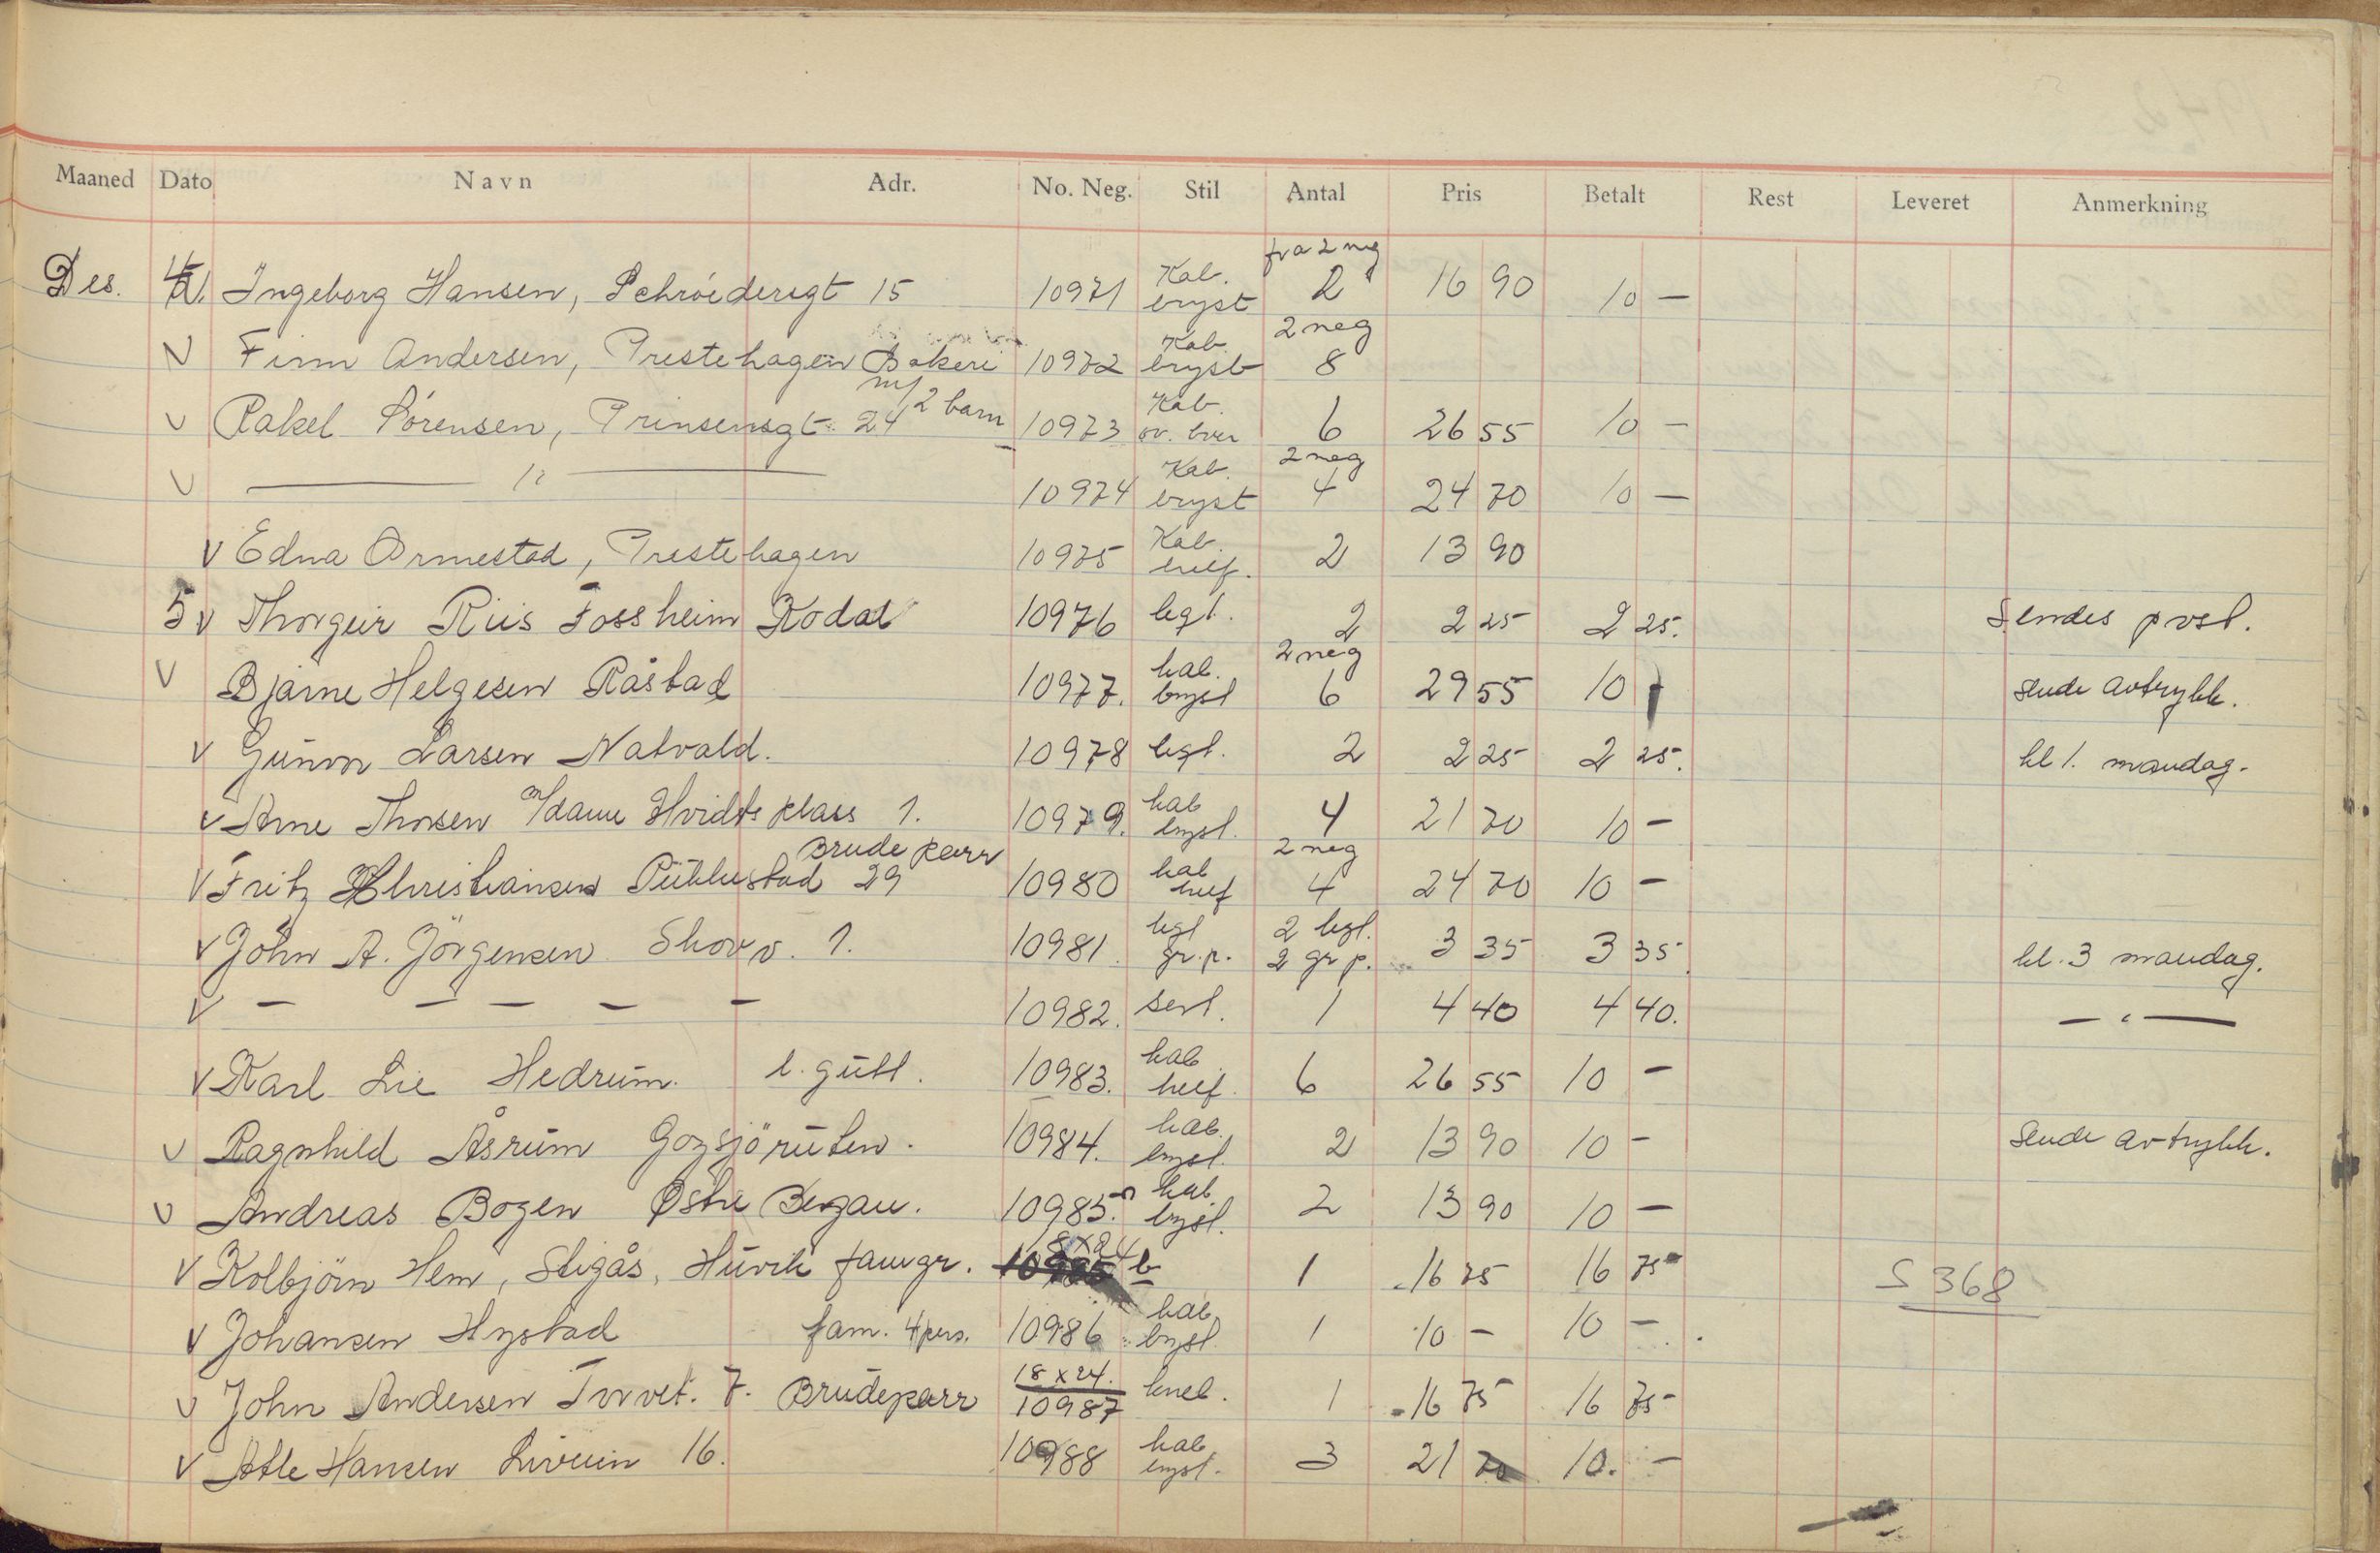 Maaned Dato Navn Adr. No. Neg. Stil Antal Pris Betalt Rest Leveret Anmerkning
fra 2 neg
Des. 4 V. Ingeborg Hansen, Schröedersgt 15 10971 Kab. bryst 2 16 90 10 —
2 neg
V Finn Andersen, Prestehagen Bakeri 10972 Kab. bryst 8
m/2 barn
V Rakel Sørensen, Prinsensgt. 24 10973 Kab. ov. 6 26 55 10 —
2 neg
V — " — 10974 Kab. bryst 4 24 70 10 —
V Edna Ormestad, Prestehagen 10975 Kab. 2 13 90
5 V Thorgeir Riis Fossheim Kodal 10976 legt. 2 2 25 2 25. Sendes post.
2 neg
V Bjarne Helgesen Råstad 10977. kab. bryst 6 29 55 10 sende avtrykk.
V Gunvor Larsen Natvald. 10978 legt. 2 2 25 2 25. kl 1. mandag.
V Arne Thorsen m/dame Hvidts plass 1. 10979. kab bryst. 4 21 70 10 —
Brudeparr 2 neg
V Fritz Christiansen 29 10980 kab 4 24 70 10 —
V John A. Jörgensen Skovv. 1. 10981. legt gr.p. 2 legt. 2 gr p. 3 35 3 35. kl. 3 mandag.
V — — — — — 10982. 1 4 40 4 40. — " —
V Karl Lie Hedrum. l. gutt. 10983. kab 6 26 55 10 —
V Ragnhild Åsrum Gogsjöruten. 10984. kab. bryst. 2 13 90 10 — Sende avtrykk.
V Andreas Bogen Østre Bergan. 10985. kab. bryst. 2 13 90 10 —
V Kolbjörn Hem, Stigås, famgr. 10985 b 1 16 75 16 75 S 368
V Johansen Hystad fam. 4 pers. 10986 kab. bryst 1 10 — 10 —
18 x 24.
V John Andersen Torvet. 7. Brudeparr 10987 kneb. 1 16 75 16 75
V Atle Hansen 16. 10988 kab. bryst. 3 21 70 10. —